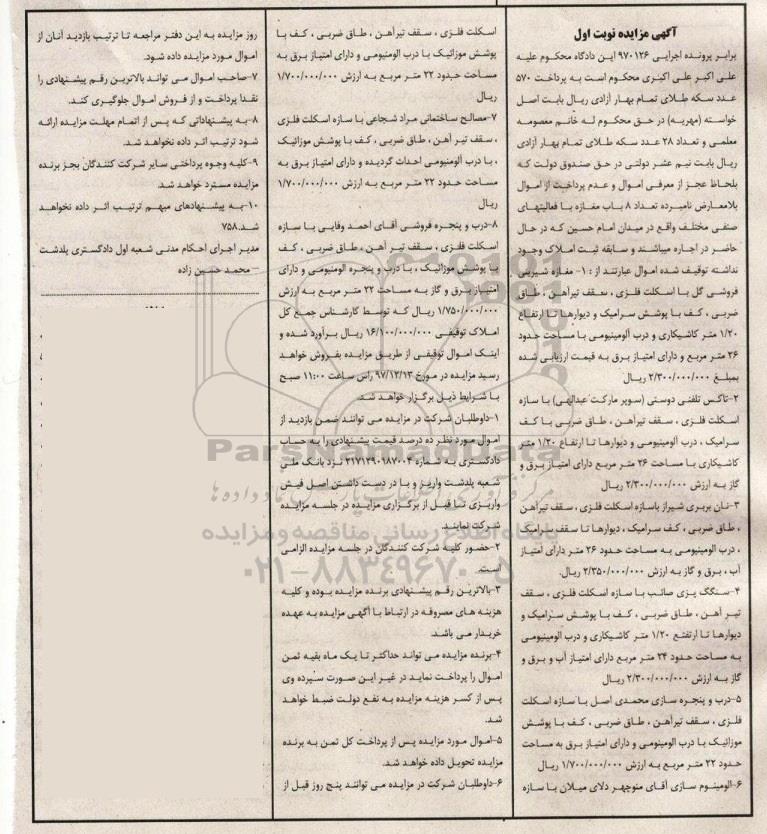 آگهی مزایده نوبت اول
برابر پرونده اجرایی ۹۷۰۱۲۶ این دادگاه محکوم علیه
علی اکبر علی اکبری محکوم است به پرداخت ۵۷۰
عدد سکه طلای تمام بهار آزادی ریال بابت اصل
خواسته (مهریه) در حق محکوم له خانم معصومه
معلمی و تعداد ۲۸ عدد سکه طلای تمام بهار آزادی
ریال بابت نیم عشر دولتی در حق صندوق دولت که
بلحاظ عجز از معرفی اموال و عدم پرداخت از اموال
بلامعارض نامبرده تعداد ۸ باب مغازه با فعالیتهای
صنفی مختلف واقع در میدان امام حسین که در حال
حاضر در اجاره میباشند و سابقه ثبت املاک وجود
نداشته توقیف شده اموال عبارتند از : ۱- مغازه شیرینی
فروشی گل با اسکلت فلزی ، سقف تیرآهن ، طاق
ضربی ، کف با پوشش سرامیک و دیوارها تا ارتفاع
۱/۲۰ متر کاشیکاری و درب آلومینیومی با مساحت حدود
۲۶ متر مربع و دارای امتیاز برق به قیمت ارزیابی شده
بمبلغ ۲/۳۰۰/۰۰۰/۰۰۰ ریال
۲-تاکس تلفنی دوستی (سوپر مارکت عبدالهی) با سازه
اسکلت فلزی ، سقف تیرآهن ، طاق ضربی با کف
سرامیک ، درب آلومینیومی و دیوارها تا ارتفاع ۱/۲۰ متر
کاشیکاری با مساحت ۲۶ متر مربع دارای امتیاز برق و
گاز به ارزش ۲/۳۰۰/۰۰۰/۰۰۰ ریال
۳-نان بربری شیراز باسازه اسکلت فلزی ، سقف تیرآهن
، طاق ضربی ، کف سرامیک ، دیوارها تا سقف سرامیک
، درب الومینیومی به مساحت حدود ۲۶ متر دارای امتیاز
آب ، برق و گاز به ارزش ۲/۳۵۰/۰۰۰/۰۰۰ ریال.
۴-سنگک پزی صائب با سازه اسکلت فلزی ، سقف
تیر آهن ، طاق ضربی ، کف با پوشش سرامیک و
دیوارها تا ارتفتع ۱/۲۰ متر کاشیکاری و درب الومینیومی
به مساحت حدود ۲۴ متر مربع دارای امتیاز آب و برق و
گاز به ارزش ۲/۳۰۰/۰۰۰/۰۰۰ ریال
۵-درب و پنجره سازی محمدی اصل با سازه اسکلت
فلزی ، سقف تیرآهن ، طاق ضربی ، کف با پوشش
موزائیک با درب الومینومی و دارای امتیاز برق به مساحت
حدود ۲۲ متر مربع به ارزش ۱/۷۰۰/۰۰۰/۰۰۰ ریال
۶-الومینوم سازی آقای منوچهر دلای میلان با سازه
اسکلت فلزی ، سقف تیرآهن ، طاق ضربی ، کف با
پوشش موزائیک با درب الومنیومی و دارای امتیاز برق به
مساحت حدود ۲۲ متر مربع به ارزش ۱/۷۰۰/۰۰۰/۰۰۰
ریال
۷-مصالح ساختمانی مراد شجاعی با سازه اسکلت فلزی
، سقف تیر آهن ، طاق ضربی ، کف با پوشش موزائیک
، با درب آلومنیومی احداث گردیده و دارای امتیاز برق به
مساحت حدود ۲۲ متر مربع به ارزش ۱/۷۰۰/۰۰۰/۰۰۰
ریال
۸-درب و پنجره فروشی آقای احمد وفایی با سازه
اسکلت فلزی ، سقف تیر آهن ، طاق ضربی ، کف
با پوشش موزائیک ، با درب و پنجره الومنیومی و دارای
امتیاز برق و گاز به مساحت ۲۲ متر مربع به ارزش
۱/۷۵۰/۰۰۰/۰۰۰ ریال که توسط کارشناس جمع کل
املاک توقیفی ۱۶/۱۰۰/۰۰۰/۰۰۰ ریال برآورد شده و
اینک اموال توقیفی از طریق مزایده بفروش خواهد
رسید مزایده در مورخ ۹۷/۱۲/۱۳ راس ساعت ۱۱:۰۰ صبح
با شرایط ذیل برگزار خواهد شد.
۱-داوطلبان شرکت در مزایده می توانند ضمن بازدید از
اموال مورد نظر ده درصد قیمت پیشنهادی را به حساب
دادگستری به شماره ۲۱۷۱۲۹۰۱۸۷۰۰۴ نزد بانک ملی
شعبه پلدشت واریز و با در دست داشتن اصل فیش
واریزی تا قبل از برگزاری مزایده در جلسه مزایده
شرکت نمایند.
۲-حضور کلیه شرکت کنندگان در جلسه مزایده الزامی
است.
۳-بالاترین رقم پیشنهادی برنده مزایده بوده و کلیه
هزینه های مصروفه در ارتباط با آگهی مزایده به عهده
خریدار می باشد.
۴-برنده مزایده می تواند حداکثر تا یک ماه بقیه ثمن
اموال را پرداخت نماید در غیر این صورت سپرده وی
پس از کسر هزینه مزایده به نفع دولت ضبط خواهد
شد.
۵-اموال مورد مزایده پس از پرداخت کل ثمن به برنده
مزایده تحویل داده خواهد شد.
۶-داوطلبان شرکت در مزایده می توانند پنج روز قبل از
روز مزایده به این دفتر مراجعه تا ترتیب بازدید آنان از
اموال مورد مزایده داده شود.
۷-صاحب اموال می تواند بالاترین رقم پیشنهادی را
نقدا پرداخت و از فروش اموال جلوگیری کند.
۸-به پیشنهاداتی که پس از اتمام مهلت مزایده ارائه
شود ترتیب اثر داده نخواهد شد.
۹-کلیه وجوه پرداختی سایر شرکت کنندگان بجز برنده
مزایده مسترد خواهد شد.
۱۰-به پیشنهادهای مبهم ترتیب اثر داده نخواهد
شد.۷۵۸
مدیر اجرای احکام مدنی شعبه اول دادگستری پلدشت
– محمد حسین زاده
ParsNamadData
مرکز فرآوری اطلاعات پارس نماد داده ها
پایگاه اطلاع رسانی مناقصه و مزایده
۰۲۱-۸۸۳۴۹۶۷۰-۵